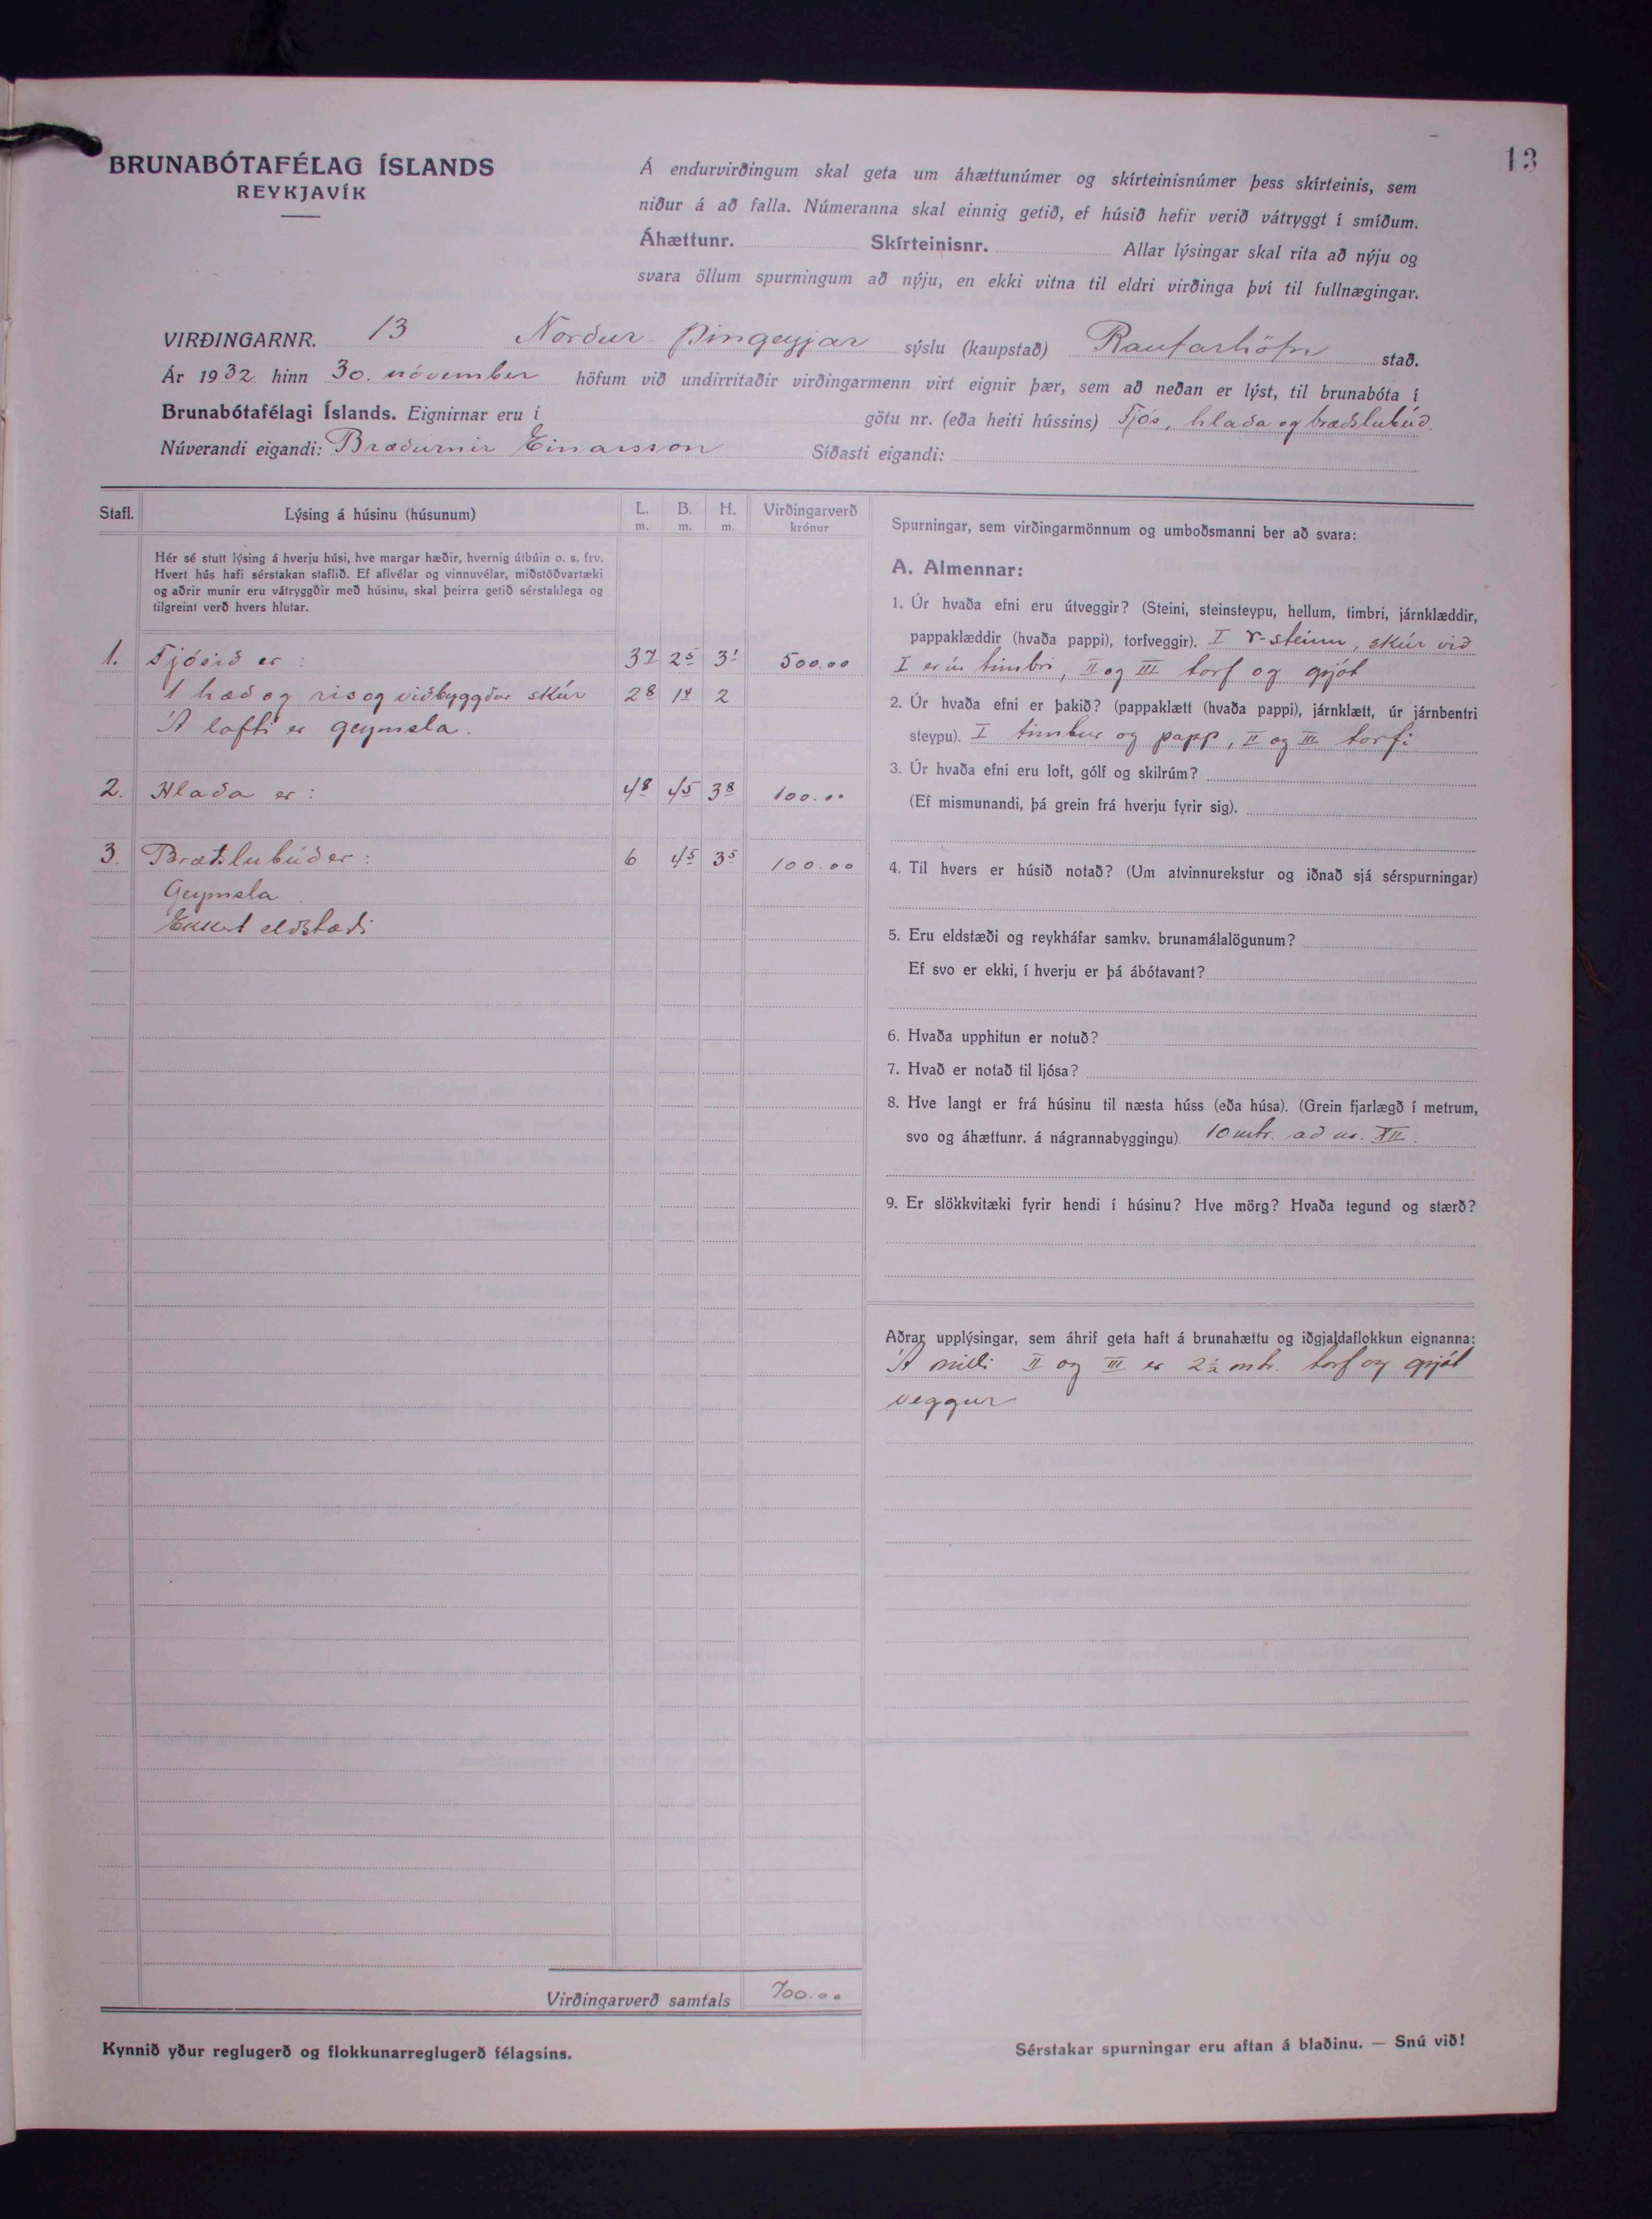 13
BRUNABÓTAFÉLAG ÍSLANDS
REYKJAVÍK
Á endurvirðingum skal geta um áhættunúmer og skírteinisnúmer þess skírteinis, sem
niður á að falla. Númeranna skal einnig getið, ef húsið hefir verið vátryggt í smíðum.
Áhættunr. Skírteinisnr. Allar lýsingar skal rita að nýju og
svara öllum spurningum að nýju, en ekki vitna til eldri virðinga því til fullnægingar.
VIRÐINGARNR. 13 Norður-Þingeyjar sýslu (kaupstað) Raufarhöfn stað.
Ár 1932 hinn 30. nóvember höfum við undirritaðir virðingarmenn virt eignir þær, sem að neðan er lýst, til brunabóta í
Brunabótafélagi Íslands. Eignirnar eru í götu nr. (eða heiti hússins) Fjós, hlaða og bræðslubúð.
Núverandi eigandi: Bræðurnir Einarsson Síðasti eigandi:
Stafl. Lýsing á húsinu (húsunum) L. m. B. m. H. m. Virðingarverð krónur
Hér sé stutt lýsing á hverju húsi, hve margar hæðir, hvernig útbúin o. s. frv.
Hvert hús hafi sérstakan staflið. Ef aflvélar og vinnuvélar, miðstöðvartæki
og aðrir munir eru vátryggðir með húsinu, skal þeirra getið sérstaklega og
tilgreint verð hvers hlutar.
1. Fjósið er: 37 25 31 500.00
1 hæð og ris og viðbyggður skúr 28 14 2
Á lofti er geymsla.
2. Hlaða er: 48 45 38 100.00
3. Bræðslubúð er: 6 45 35 100.00
Geymsla
Ekkert eldstæði
Virðingarverð samtals 700.00
Spurningar, sem virðingarmönnum og umboðsmanni ber að svara:
A. Almennar:
1. Úr hvaða efni eru útveggir? (Steini, steinsteypu, hellum, timbri, járnklæddir,
pappaklæddir (hvaða pappi), torfveggir). I r-steinn, skúr við
I er úr timbri, II og III torf og grjót
2. Úr hvaða efni er þakið? (pappaklætt (hvaða pappi), járnklætt, úr járnbentri
steypu). I timbur og papp, II og III torfi
3. Úr hvaða efni eru loft, gólf og skilrúm?
(Ef mismunandi, þá grein frá hverju fyrir sig).
4. Til hvers er húsið notað? (Um atvinnurekstur og iðnað sjá sérspurningar)
5. Eru eldstæði og reykháfar samkv. brunamálalögunum?
Ef svo er ekki, í hverju er þá ábótavant?
6. Hvaða upphitun er notuð?
7. Hvað er notað til ljósa?
8. Hve langt er frá húsinu til næsta húss (eða húsa). (Grein fjarlægð í metrum,
svo og áhættunr. á nágrannabyggingu) 10 mtr. að nr. XII.
9. Er slökkvitæki fyrir hendi í húsinu? Hve mörg? Hvaða tegund og stærð?
Aðrar upplýsingar, sem áhrif geta haft á brunahættu og iðgjaldaflokkun eignanna:
Á milli II og III er 2½ mtr. torf og grjót
veggur
Kynnið yður reglugerð og flokkunarreglugerð félagsins.
Sérstakar spurningar eru aftan á blaðinu. — Snú við!